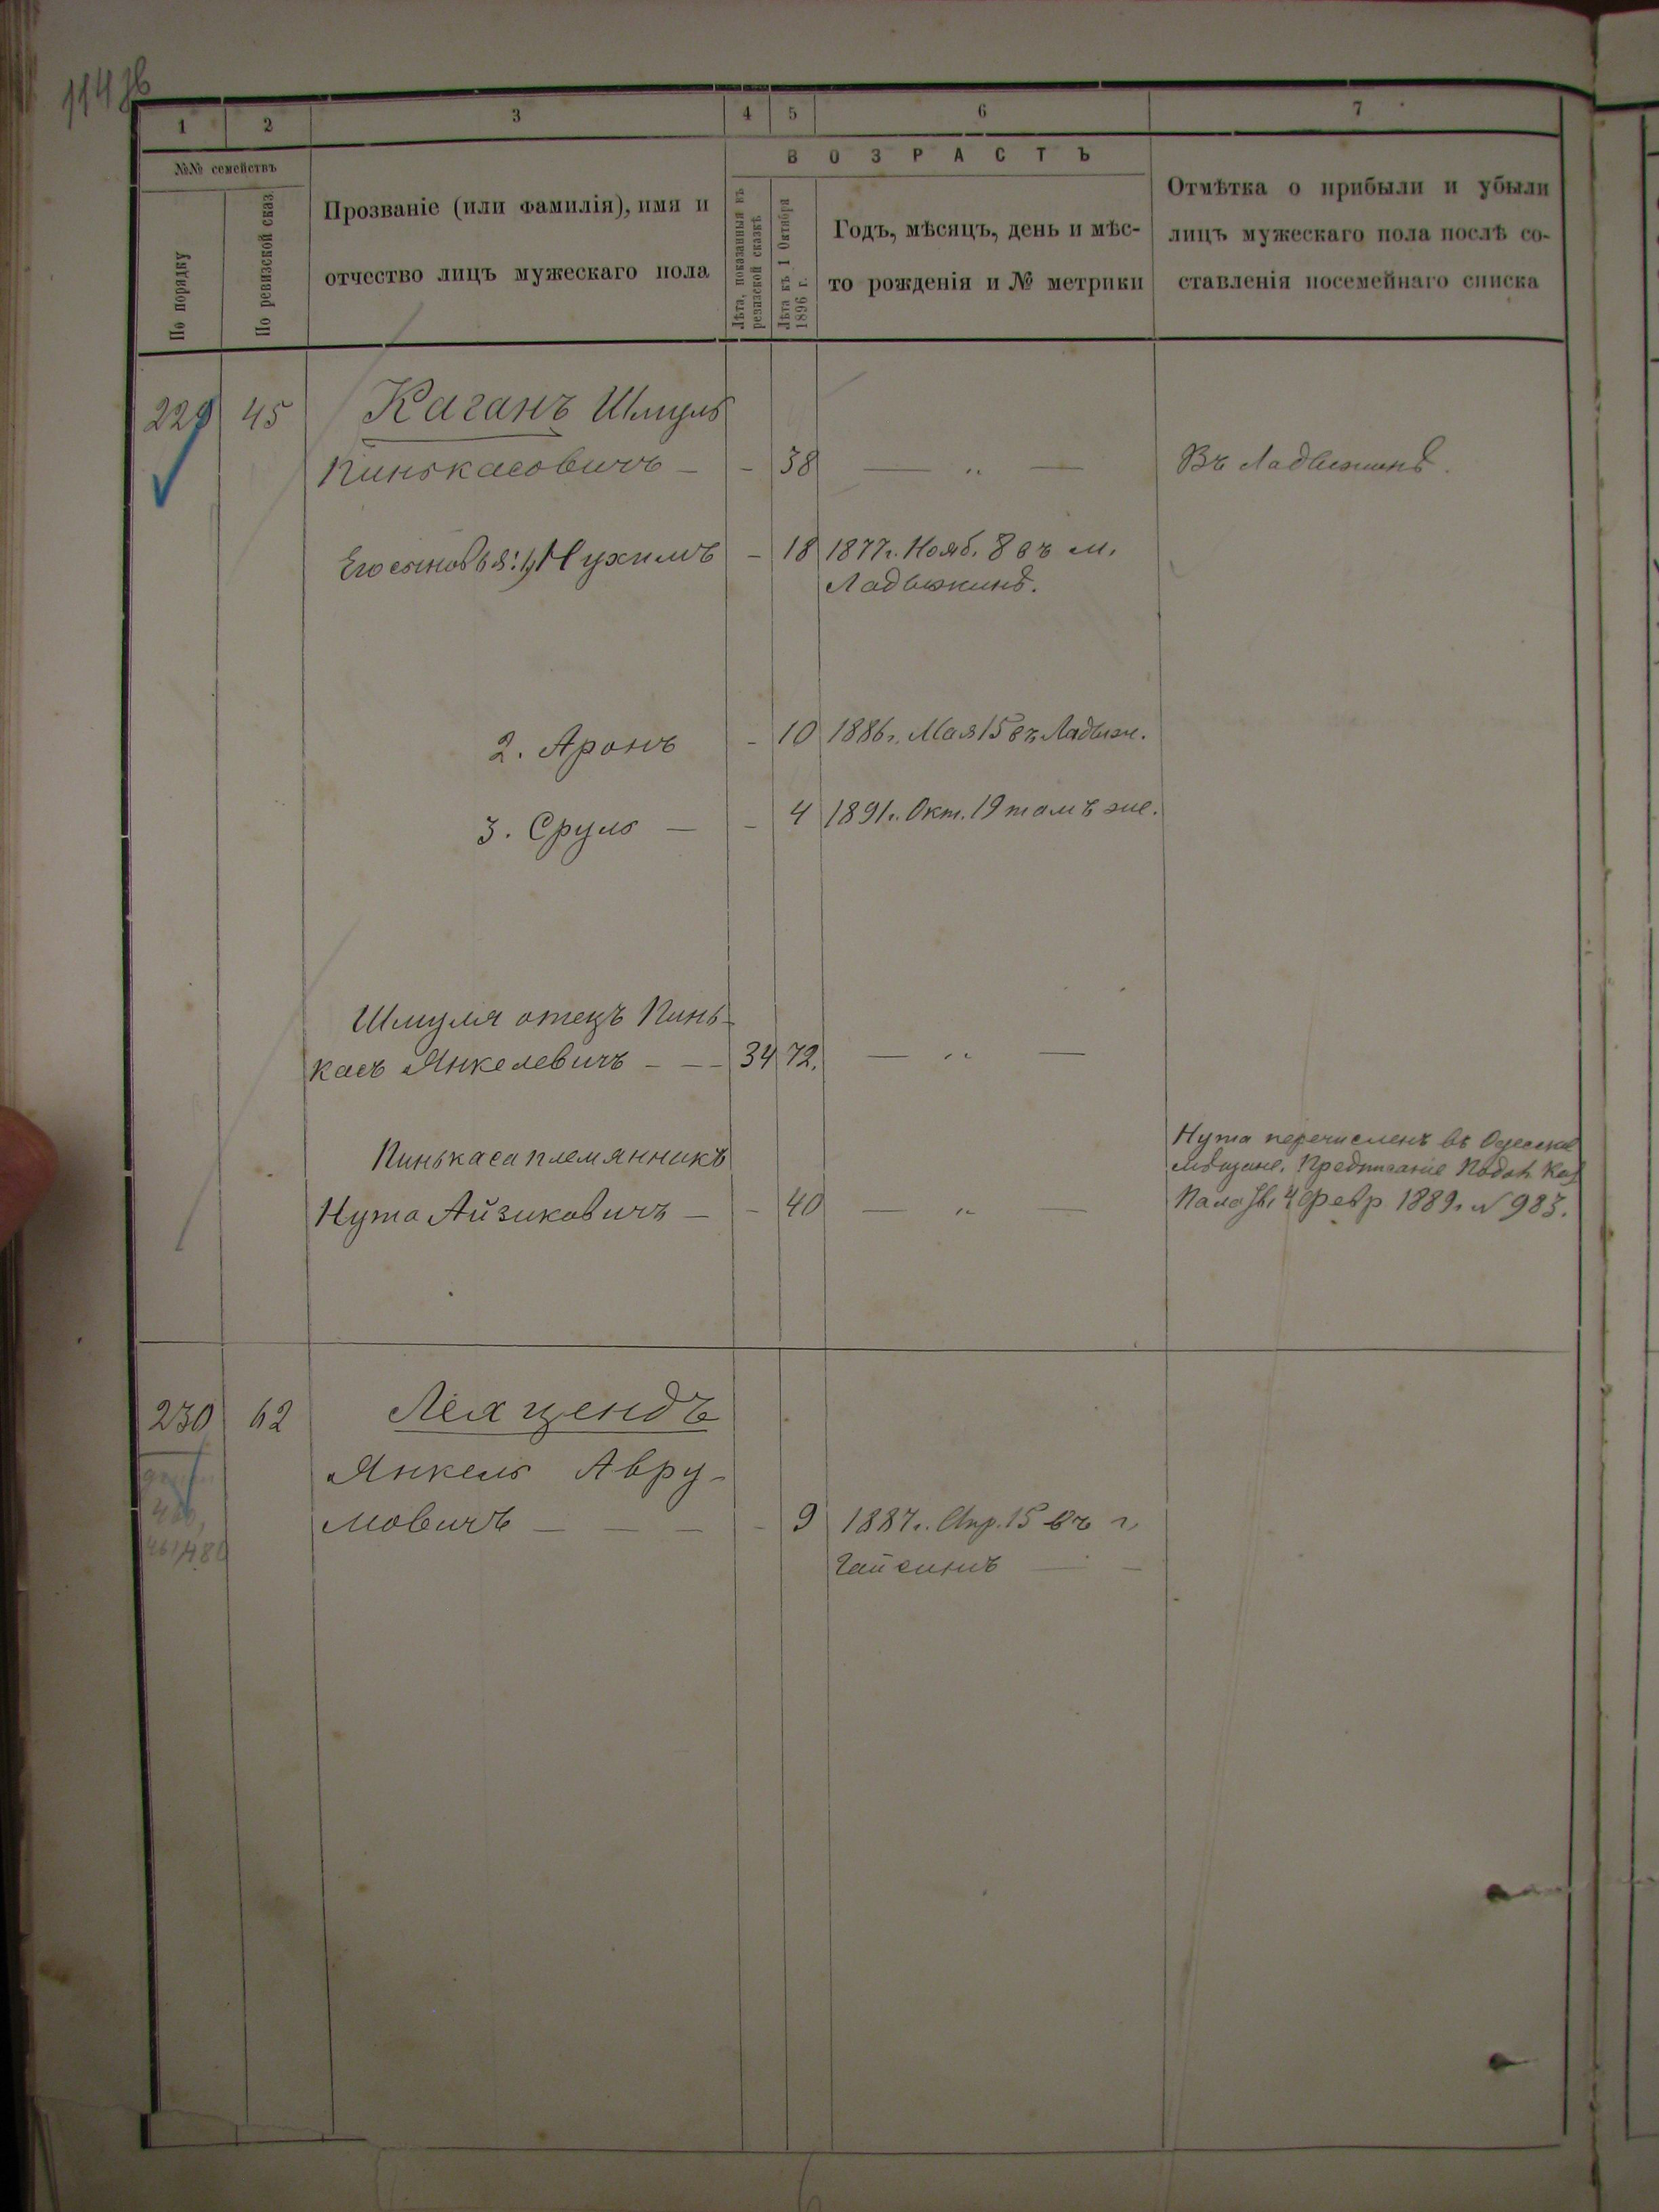 114
1 2 3 4 5 6 7
№№ семействъ
По порядку
По ревизской сказ.
Прозваніе (или фамилія), имя и
отчество лицъ мужескаго пола
ВОЗРАСТЪ
Лѣта, показанныя въ
ревизской сказкѣ
Лѣта къ 1 Октября
1896 г.
Годъ, мѣсяцъ, день и мѣс-
то рожденія и № метрики
Отмѣтка о прибыли и убыли
лицъ мужескаго пола послѣ со-
ставленія посемейнаго списка
229 45 Каганъ Шмуль
Пинькасовичъ — - 38 — „ — Въ Ладыжинѣ.
Его сыновья: 1) Нухимъ - 18 1877г. Нояб. 8 въ м.
Ладыжинѣ.
2. Аронъ - 10 1886г. Мая 15 въ Ладыж.
3. Сруль — - 4 1891г. Окт. 19 тамъ же.
Шмуля отецъ Пинь-
касъ Янкелевичъ - — - 34 72. — „ —
Пинькаса племянникъ
Нута Айзиковичъ — - 40 — „ —
Нута перечисленъ въ Одесскіе
мѣщане. Предписаніе Подол. Каз
Пала 4 февр. 1889г. № 983.
230 62 Лехцендъ
Янкель Авру-
мовичъ — — — - 9 1887г. Апр. 15 въ г.
Гайсинъ — —
480